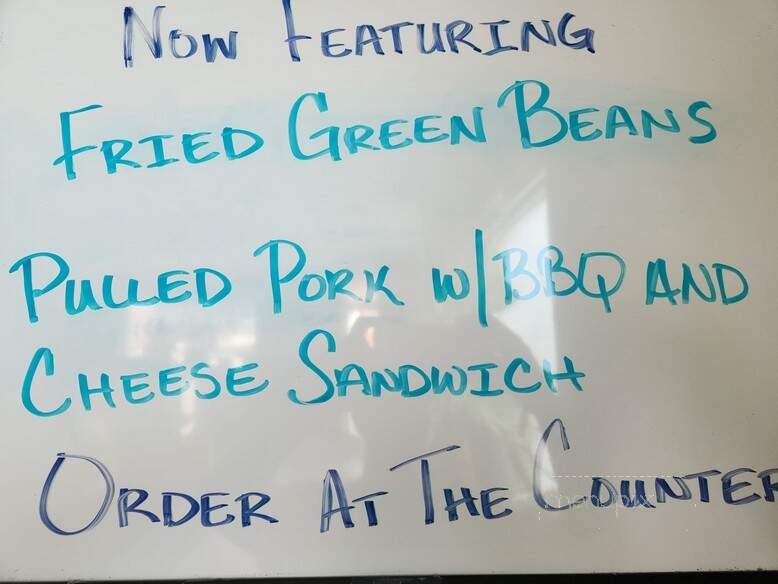 NOW FEATURING
FRIED GREEN BEANS
PULLED PORK W/BBQ AND
CHEESE SANDWICH
ORDER AT THE COUNTER
menupix